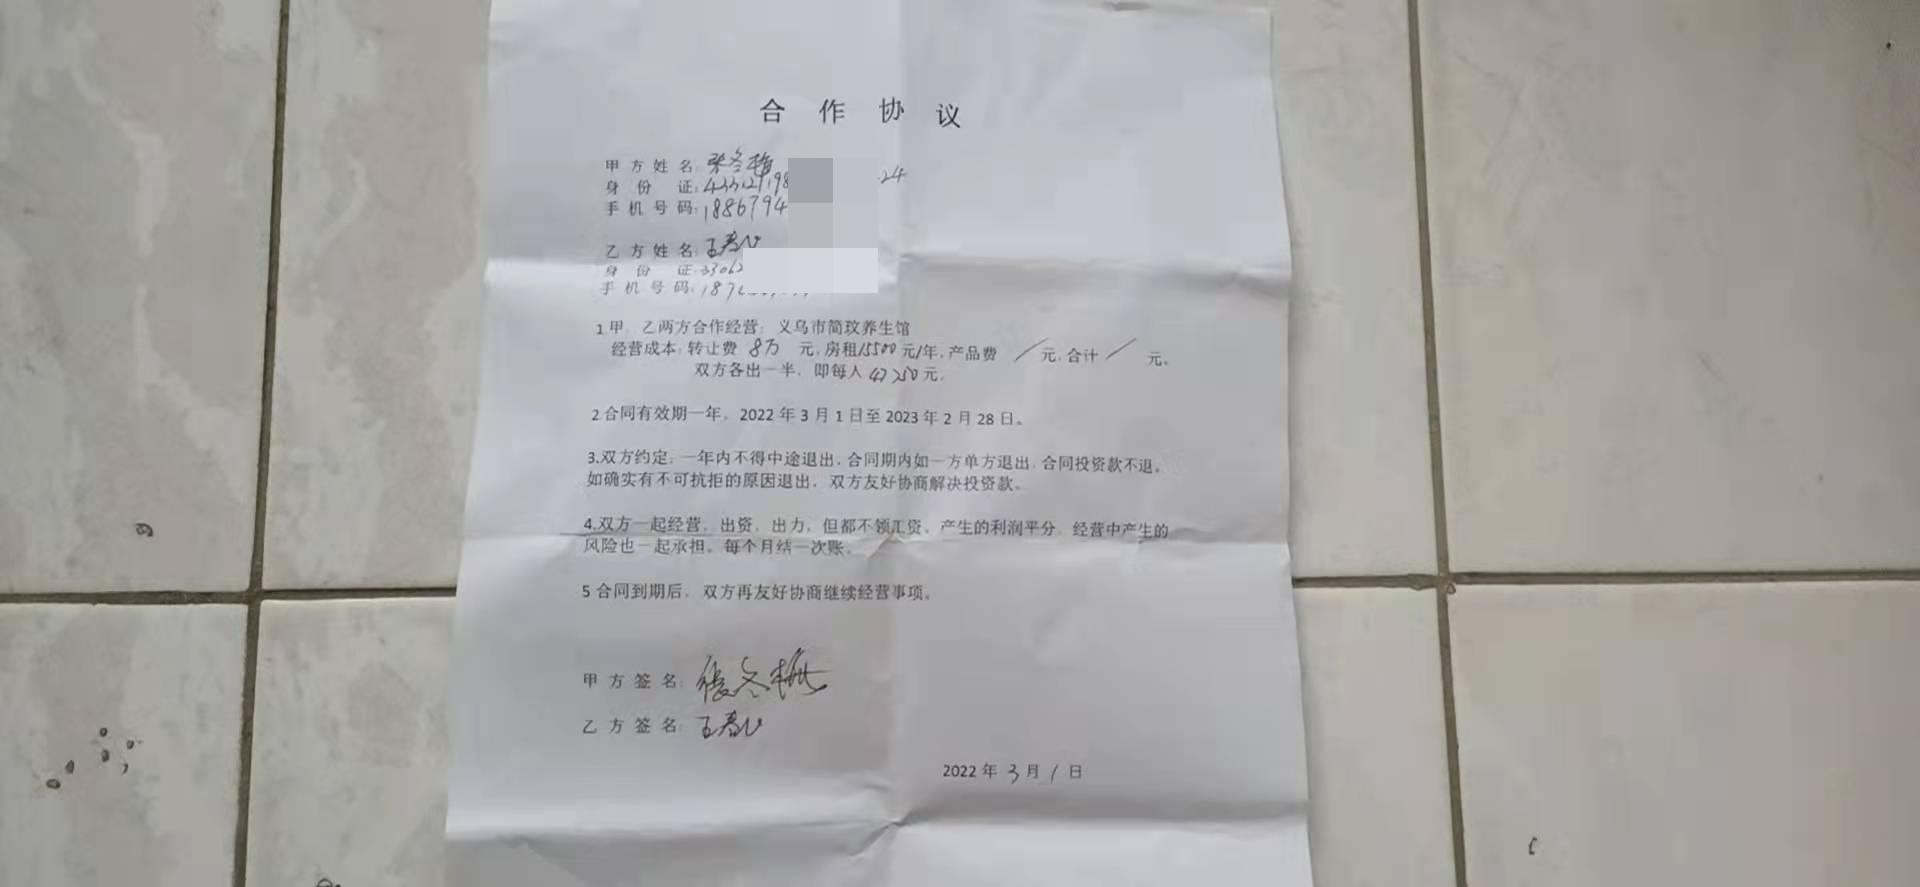 合作协议
甲方姓名:张冬梅
身份证:433127198 24
手机号码:1886794
乙方姓名:王春
身份证:33062
手机号码:187
1甲、乙两方合作经营:义乌市简玟养生馆
经营成本:转让费 8万 元,房租15500元/年,产品费 / 元,合计 / 元。
双方各出一半,即每人47750元。
2合同有效期一年。2022年3月1日至2023年2月28日。
3.双方约定:一年内不得中途退出,合同期内如一方单方退出,合同投资款不退。
如确实有不可抗拒的原因退出,双方友好协商解决投资款。
4.双方一起经营,出资,出力,但都不领工资。产生的利润平分,经营中产生的
风险也一起承担。每个月结一次账。
5合同到期后,双方再友好协商继续经营事项。
甲方签名:张冬梅
乙方签名:王春
2022年3月1日